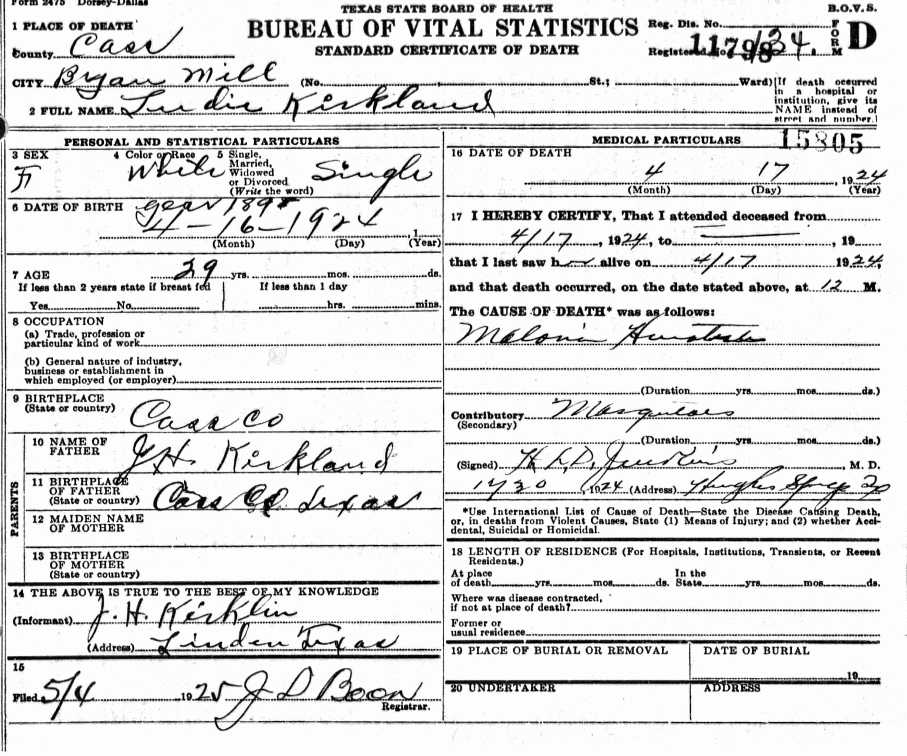 Form 2475 Dorsey-Dallas
TEXAS STATE BOARD OF HEALTH
B.O.V.S.
BUREAU OF VITAL STATISTICS
STANDARD CERTIFICATE OF DEATH
Reg. Dis. No.
Registered No.
FORM D
1 PLACE OF DEATH
County Cass
CITY Bryan Mill (No. St.; Ward)
2 FULL NAME Kirkland
If death occurred
in a hospital or
institution, give its
NAME instead of
street and number.
PERSONAL AND STATISTICAL PARTICULARS
3 SEX F
4 Color or Race White
5 Single, Married, Widowed or Divorced (Write the word) Single
6 DATE OF BIRTH year
4-16-1924
(Month) (Day) (Year)
7 AGE 29 yrs. mos. ds.
If less than 2 years state if breast fed
Yes No
If less than 1 day
hrs. mins.
8 OCCUPATION
(a) Trade, profession or
particular kind of work
(b) General nature of industry,
business or establishment in
which employed (or employer)
9 BIRTHPLACE
(State or country) Cass Co
PARENTS
10 NAME OF
FATHER J.H. Kirkland
11 BIRTHPLACE
OF FATHER
(State or country) Cass Co Texas
12 MAIDEN NAME
OF MOTHER
13 BIRTHPLACE
OF MOTHER
(State or country)
14 THE ABOVE IS TRUE TO THE BEST OF MY KNOWLEDGE
(Informant) J. H. Kirklin
(Address) Linden Texas
15
Filed 5/4 1925 J D Boon
Registrar.
MEDICAL PARTICULARS
15805
16 DATE OF DEATH
4 17 , 1924
(Month) (Day) (Year)
17 I HEREBY CERTIFY, That I attended deceased from
4/17 , 1924, to , 19
that I last saw h alive on 4/17 1924,
and that death occurred, on the date stated above, at 12 M.
The CAUSE OF DEATH* was as follows:
(Duration yrs. mos. ds.)
Contributory
(Secondary)
(Duration yrs. mos. ds.)
(Signed) Jenkins , M. D.
, 1924 (Address) Hughes
*Use International List of Cause of Death—State the Disease Causing Death,
or, in deaths from Violent Causes, State (1) Means of Injury; and (2) whether Acci-
dental, Suicidal or Homicidal.
18 LENGTH OF RESIDENCE (For Hospitals, Institutions, Transients, or Recent
Residents.)
At place of death yrs. mos. ds. In the State yrs. mos. ds.
Where was disease contracted,
if not at place of death?
Former or
usual residence
19 PLACE OF BURIAL OR REMOVAL
DATE OF BURIAL
19
20 UNDERTAKER
ADDRESS